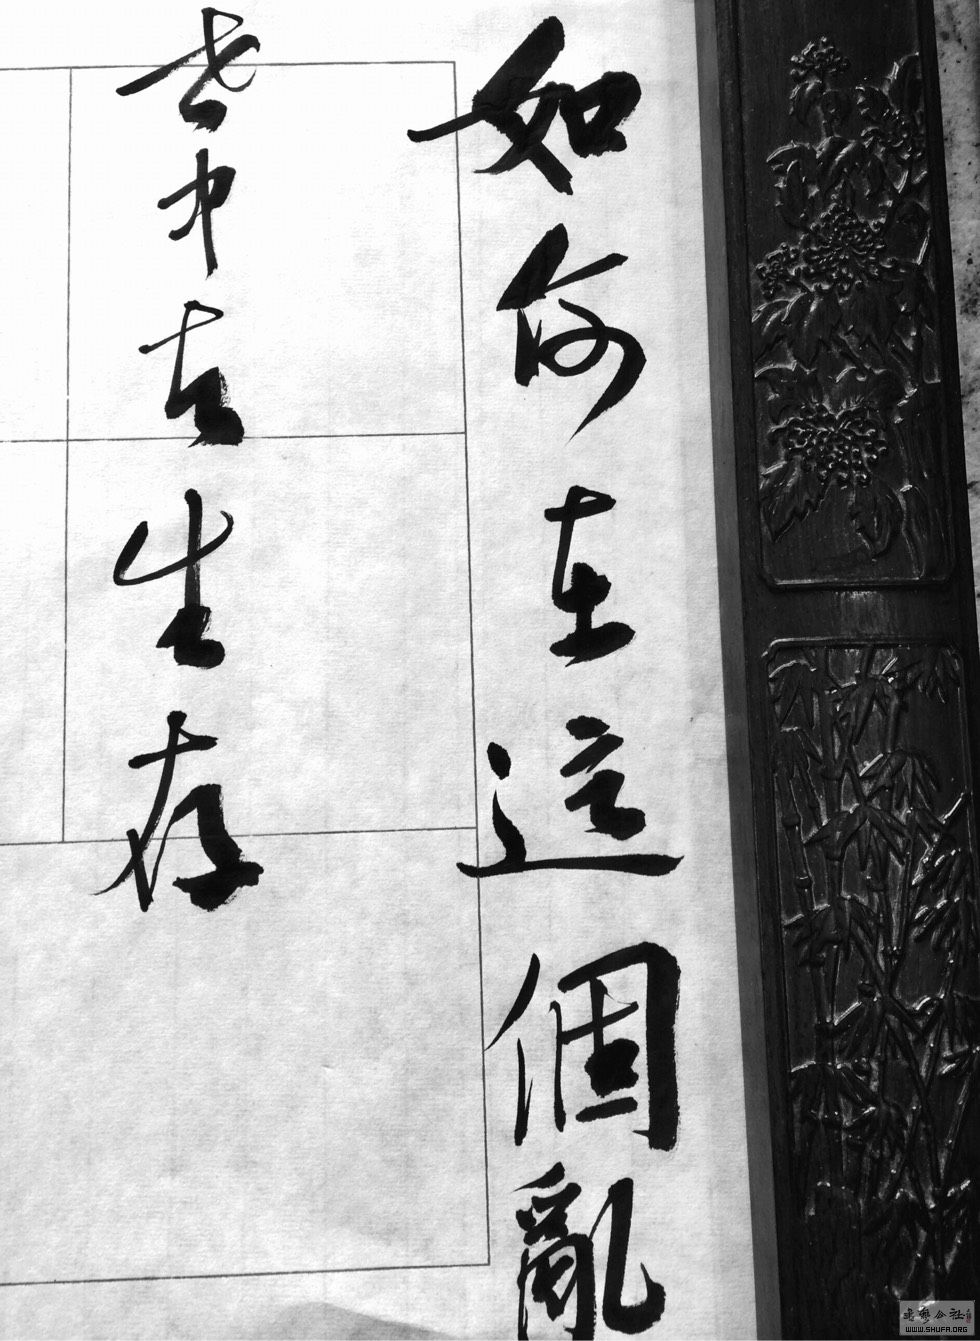 如何在這個亂
世中去生存
WWW.SHUFA.ORG